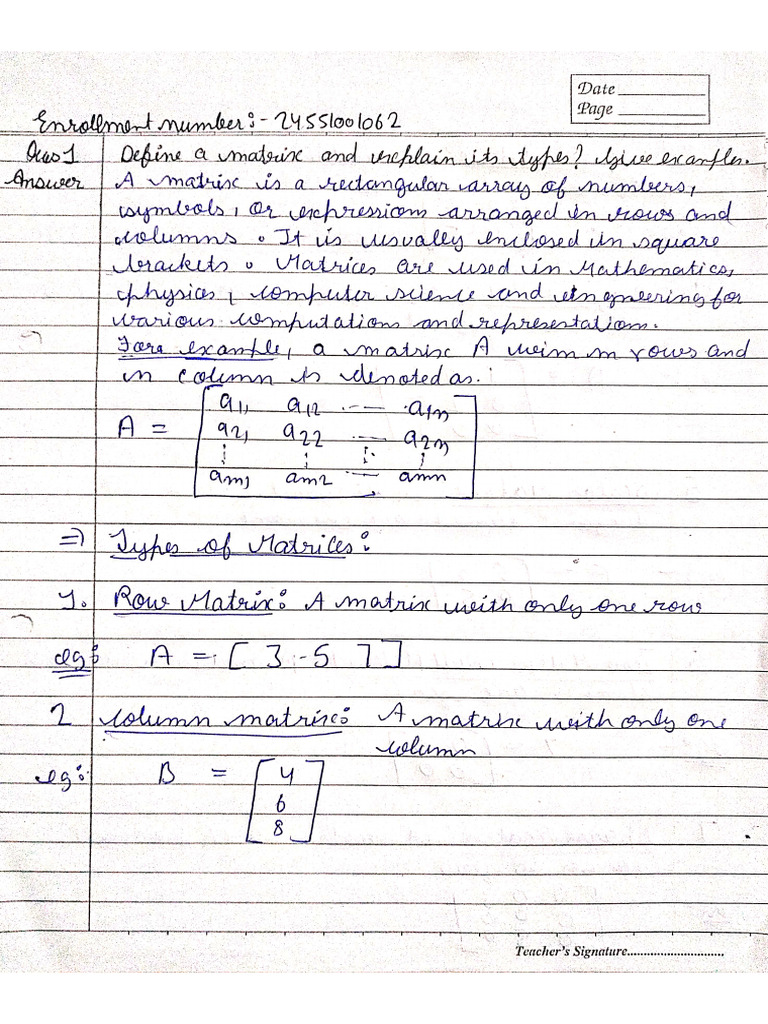 Date
Page
Enrollment number:- 24551001062
Ques 1 Define a matrix and explain its types? Give examples.
Answer A matrix is a rectangular array of numbers,
symbols, or expressions arranged in rows and
columns. It is usually enclosed in square
brackets. Matrices are used in Mathematics,
physics, computer science and engineering for
various computations and representations.
Fore example, a matrix A m rows and
in column is denoted as.
a11 a12 ---- a1n
A = a21 a22 ---- a2n
⋮ ⋮ ⋮ ⋮
am1 am2 ---- amn
=> Types of Matrices:
1. Row Matrix: A matrix with only one row
eg: A = [ 3 -5 7 ]
2 Column matrix: A matrix with only one
column
eg: B = [ 4
6
8 ]
Teacher's Signature..............................